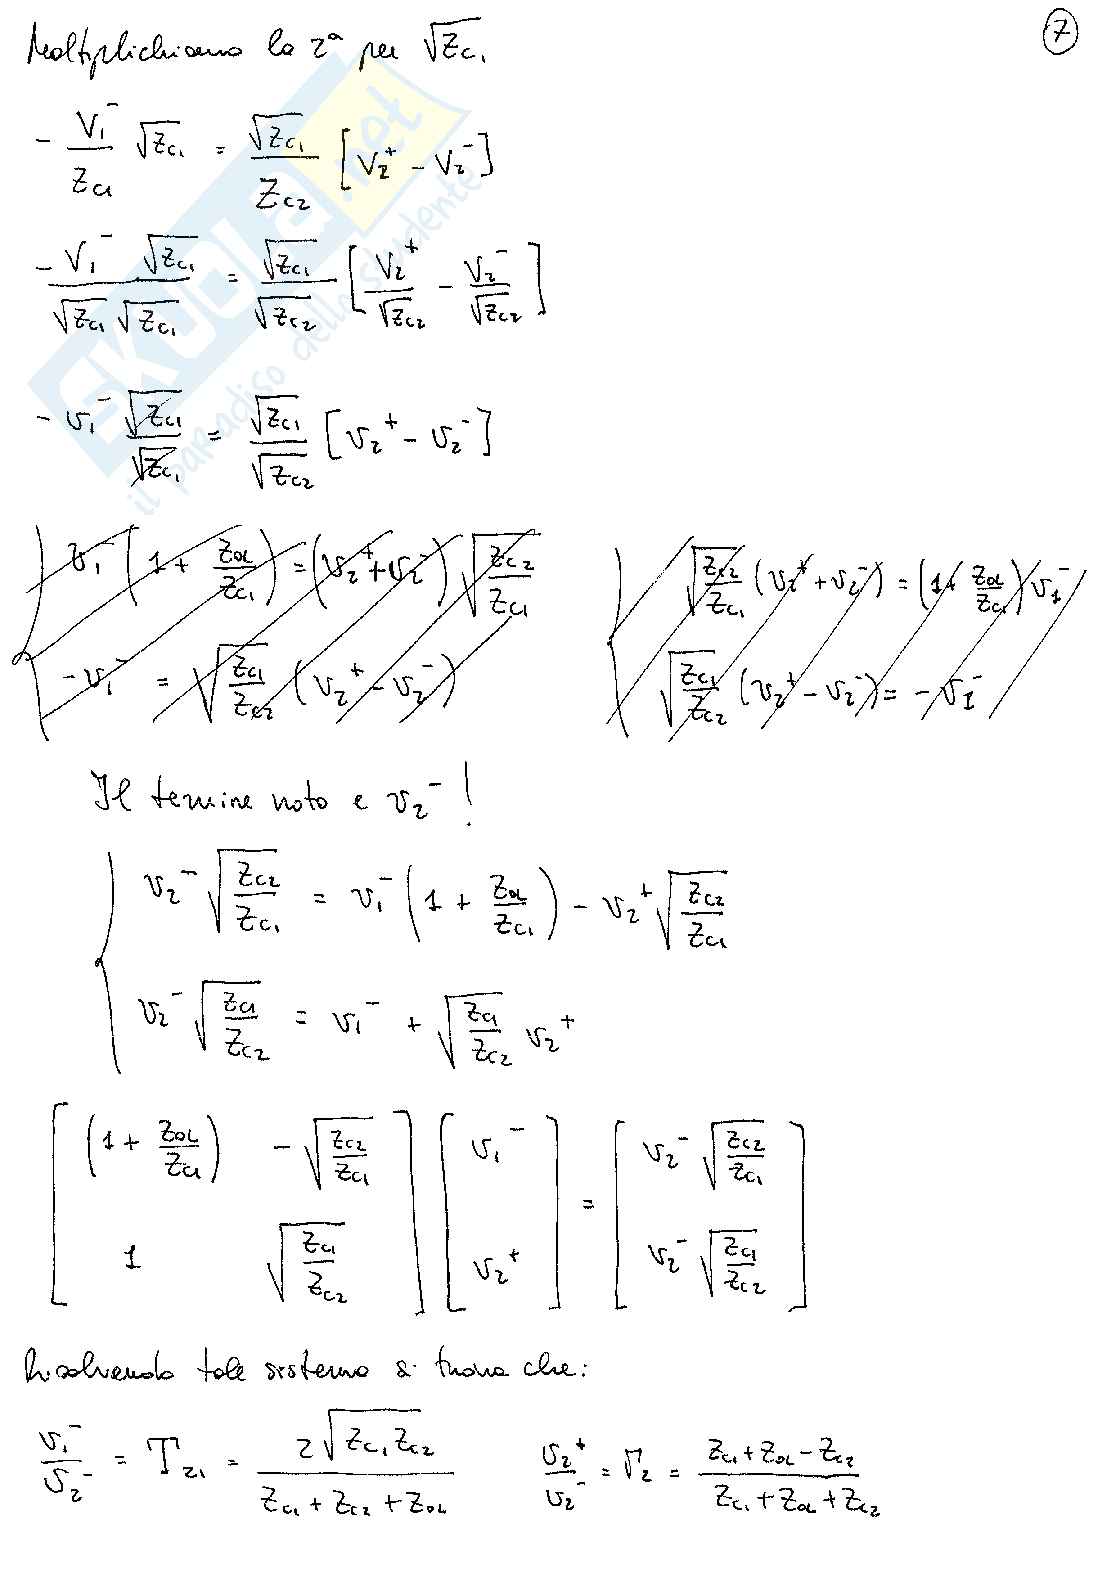 7
Moltiplichiamo la 2ª per √Zc1
- V1⁻/Zc1 √Zc1 = √Zc1/Zc2 [V2⁺ - V2⁻]
- V1⁻ √Zc1 / (√Zc1 √Zc1) = √Zc1/√Zc2 [V2⁺/√Zc2 - V2⁻/√Zc2]
- v1⁻ √Zc1/√Zc1 = √Zc1/√Zc2 [v2⁺ - v2⁻]
{ v1⁻ (1 + Z0L/Zc1) = (v2⁺ + v2⁻) √(Zc2/Zc1)
- v1⁻ = √(Zc1/Zc2) (v2⁺ - v2⁻)
{ √(Zc2/Zc1) (v2⁺ + v2⁻) = (1 + Z0L/Zc1) v1⁻
√(Zc1/Zc2) (v2⁺ - v2⁻) = - v1⁻
Il termine noto e v2⁻ !
{ v2⁻ √(Zc2/Zc1) = v1⁻ (1 + Z0L/Zc1) - v2⁺ √(Zc2/Zc1)
v2⁻ √(Zc1/Zc2) = v1⁻ + √(Zc1/Zc2) v2⁺
[ (1 + Z0L/Zc1) -√(Zc2/Zc1) ] [ v1⁻ ] = [ v2⁻ √(Zc2/Zc1) ]
[ 1 √(Zc1/Zc2) ] [ v2⁺ ] [ v2⁻ √(Zc1/Zc2) ]
Risolvendo tale sistema si trova che:
v1⁻/v2⁻ = T21 = 2√(Zc1 Zc2) / (Zc1 + Zc2 + Z0L)
v2⁺/v2⁻ = Γ2 = (Zc1 + Z0L - Zc2) / (Zc1 + Z0L + Zc2)
SKUOLA.net
il paradiso dello studente